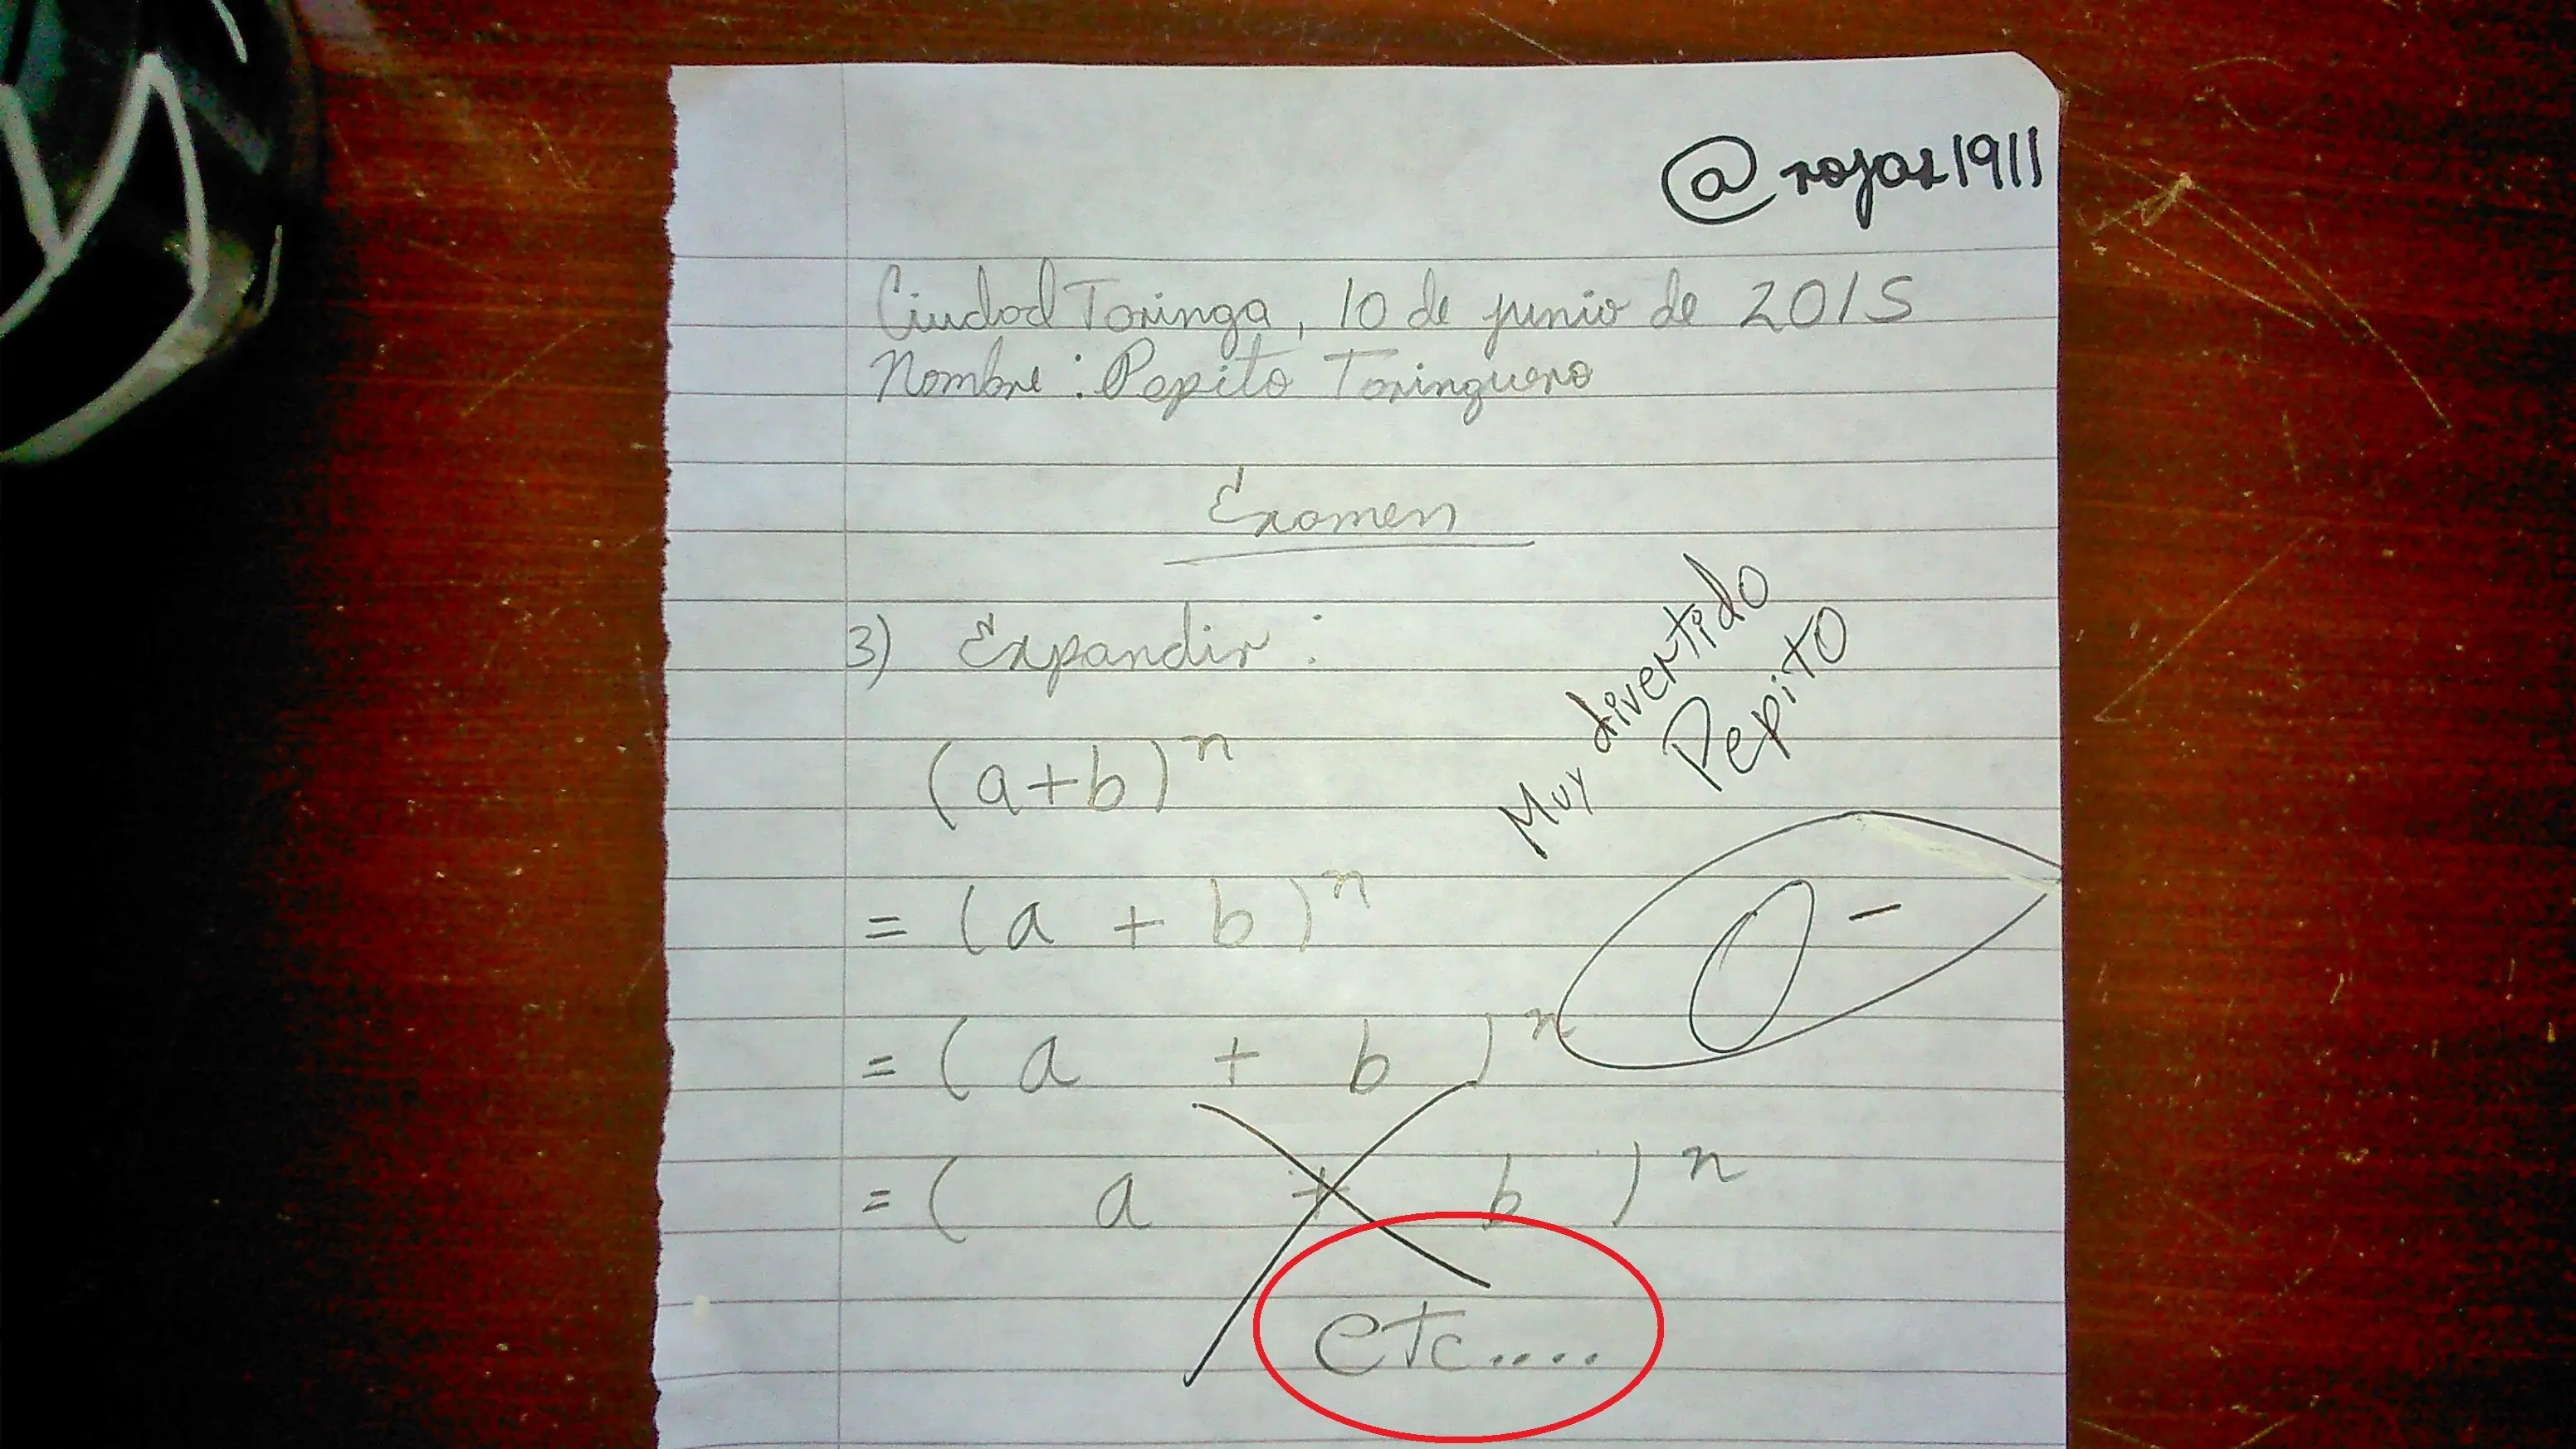 @rojas1911
Ciudad Taringa, 10 de junio de 2015
Nombre: Pepito Taringuero
Examen
3) Expandir:
Muy divertido
Pepito
(a+b)^n
= (a + b)^n
0-
= (a + b)^n
= ( a + b )^n
etc....